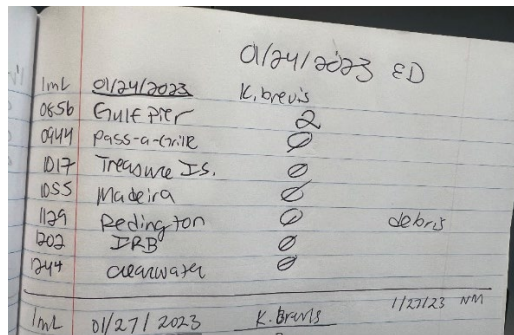 01/24/2023 ED
1mL 01/24/2023 K. brevis
0856 Gulf Pier 2
0944 Pass-a-Grille Ø
1017 Treasure Is. Ø
1055 Madeira Ø
1129 Redington Ø debris
1202 IRB Ø
1244 Clearwater Ø
1/27/23 NM
1mL 01/27/2023 K. Brevis